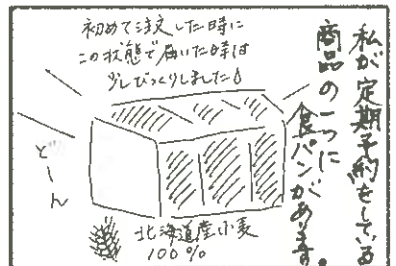 私が定期予約をしている
商品の一つに
食パンがあります。
初めて注文した時に
この状態で届いた時は
少しびっくりしました
どーん
北海道産小麦
100%